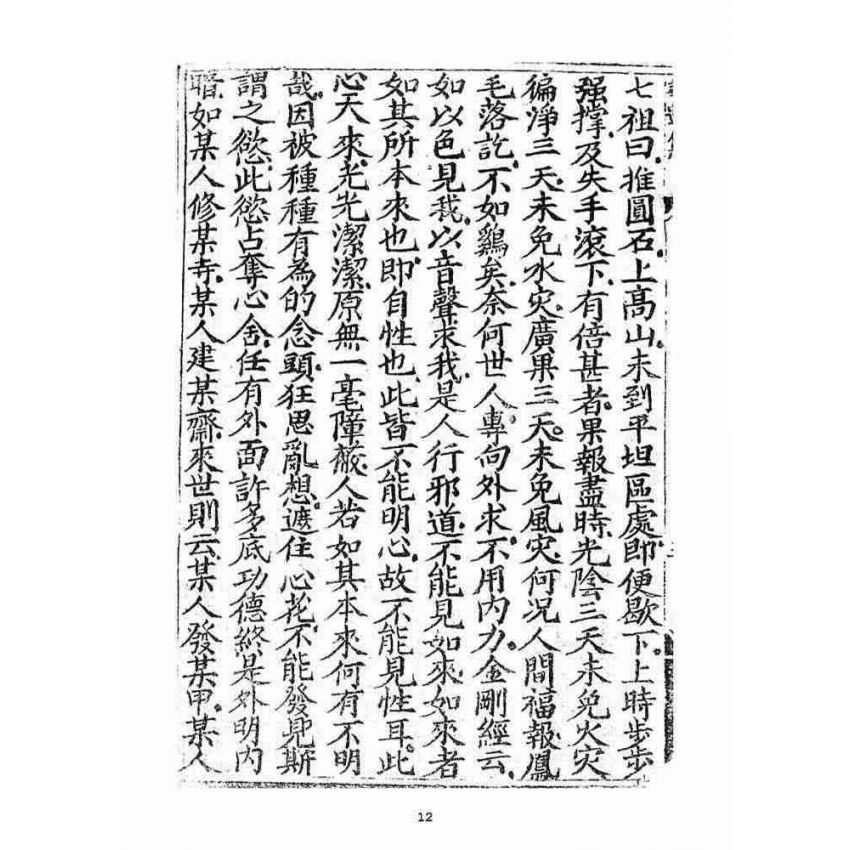 七祖曰推圓石上高山未到平坦區處即便歇下上時步步
强撑及失手滾下有倍甚者果報盡時光陰三天未免火灾
徧淨三天未免水灾廣果三天未免風灾何況人間福報鳳
毛落訖不如鷄矣奈何世人專向外求不用内力金剛經云
如以色見我以音聲求我是人行邪道不能見如來如來者
如其所本來也即自性也此皆不能明心故不能見性耳此
心天來光光潔潔原無一毫障蔽人若如其本來何有不明
哉因被種種有為的念頭狂思亂想遮住心花不能發見斯
謂之慾此慾占奪心舍任有外面許多底功德終是外明内
暗如某人修某寺某人建某齋來世則云某人發某甲某人
12